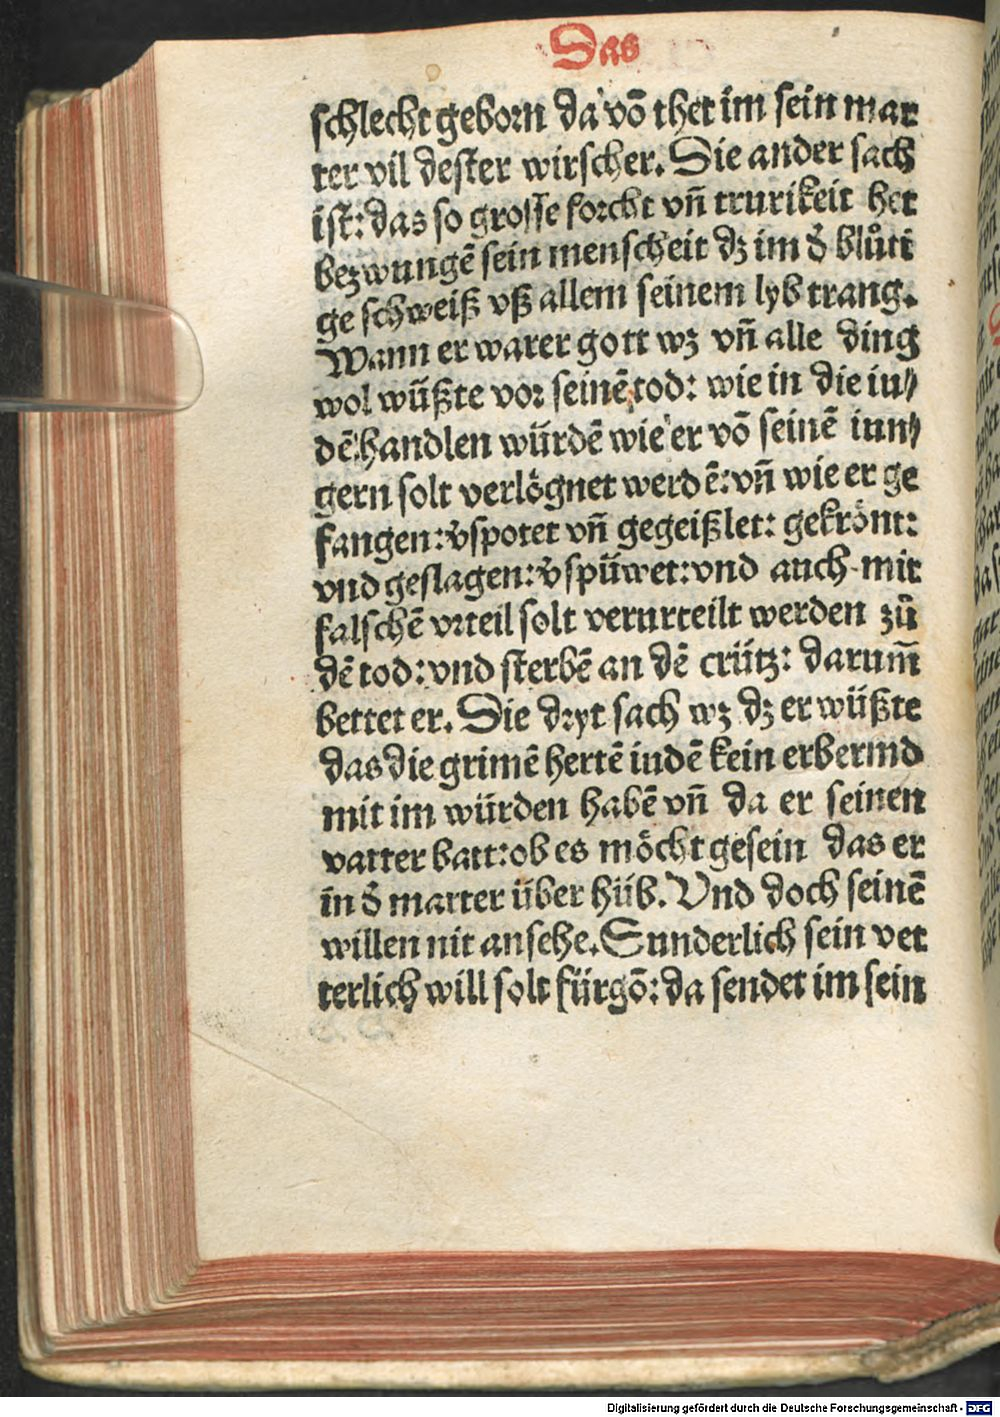 Das
schlecht geborn da vō thet im sein mar
ter vil dester wirscher. Die ander sach
ist: das so grosse forcht vn̄ trurikeit het
bezwungē sein menscheit dz im d̕ blůti
ge schweiß vß allem seinem lyb trang.
Wann er warer gott wz vn̄ alle ding
wol wüßte vor seinē tod: wie in die iu⸗
dē handlen würdē wie er vō seinē iun⸗
gern solt verlögnet werdē: vn̄ wie er ge
fangen: v̕spotet vn̄ gegeißlet: gekrönt:
vnd geslagen: v̕spüwet: vnd auch mit
falschē vrteil solt verurteilt werden zū
dē tod: vnd sterbē an dē crütz: darum̄
bettet er. Die dryt sach wz dz er wüßte
das die grimē hertē iudē kein erbermd
mit im würden habē vn̄ da er seinen
vatter batt: ob es möcht gesein das er
in d̕ marter über hüb. Vnd doch seinē
willen nit ansehe. Sunderlich sein vet
terlich will solt fürgō: da sendet im sein
Digitalisierung gefördert durch die Deutsche Forschungsgemeinschaft - DFG